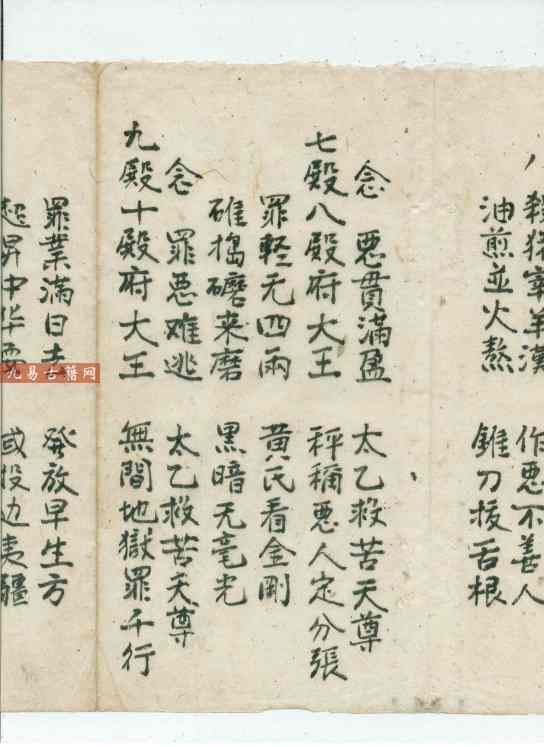 殺猪宰羊漢 作惡不善人
油煎並火熬 錐刀拔舌根
念 惡貫滿盈 太乙救苦天尊
七殿八殿府大王 秤稱惡人定分張
罪輕无四兩 黄氏看金剛
碓搗磨来磨 黑暗无毫光
念 罪惡难逃 太乙救苦天尊
九殿十殿府大王 無間地獄罪千行
罪業滿日 發放早生方
超昇中华 或投边夷疆
九易古籍网